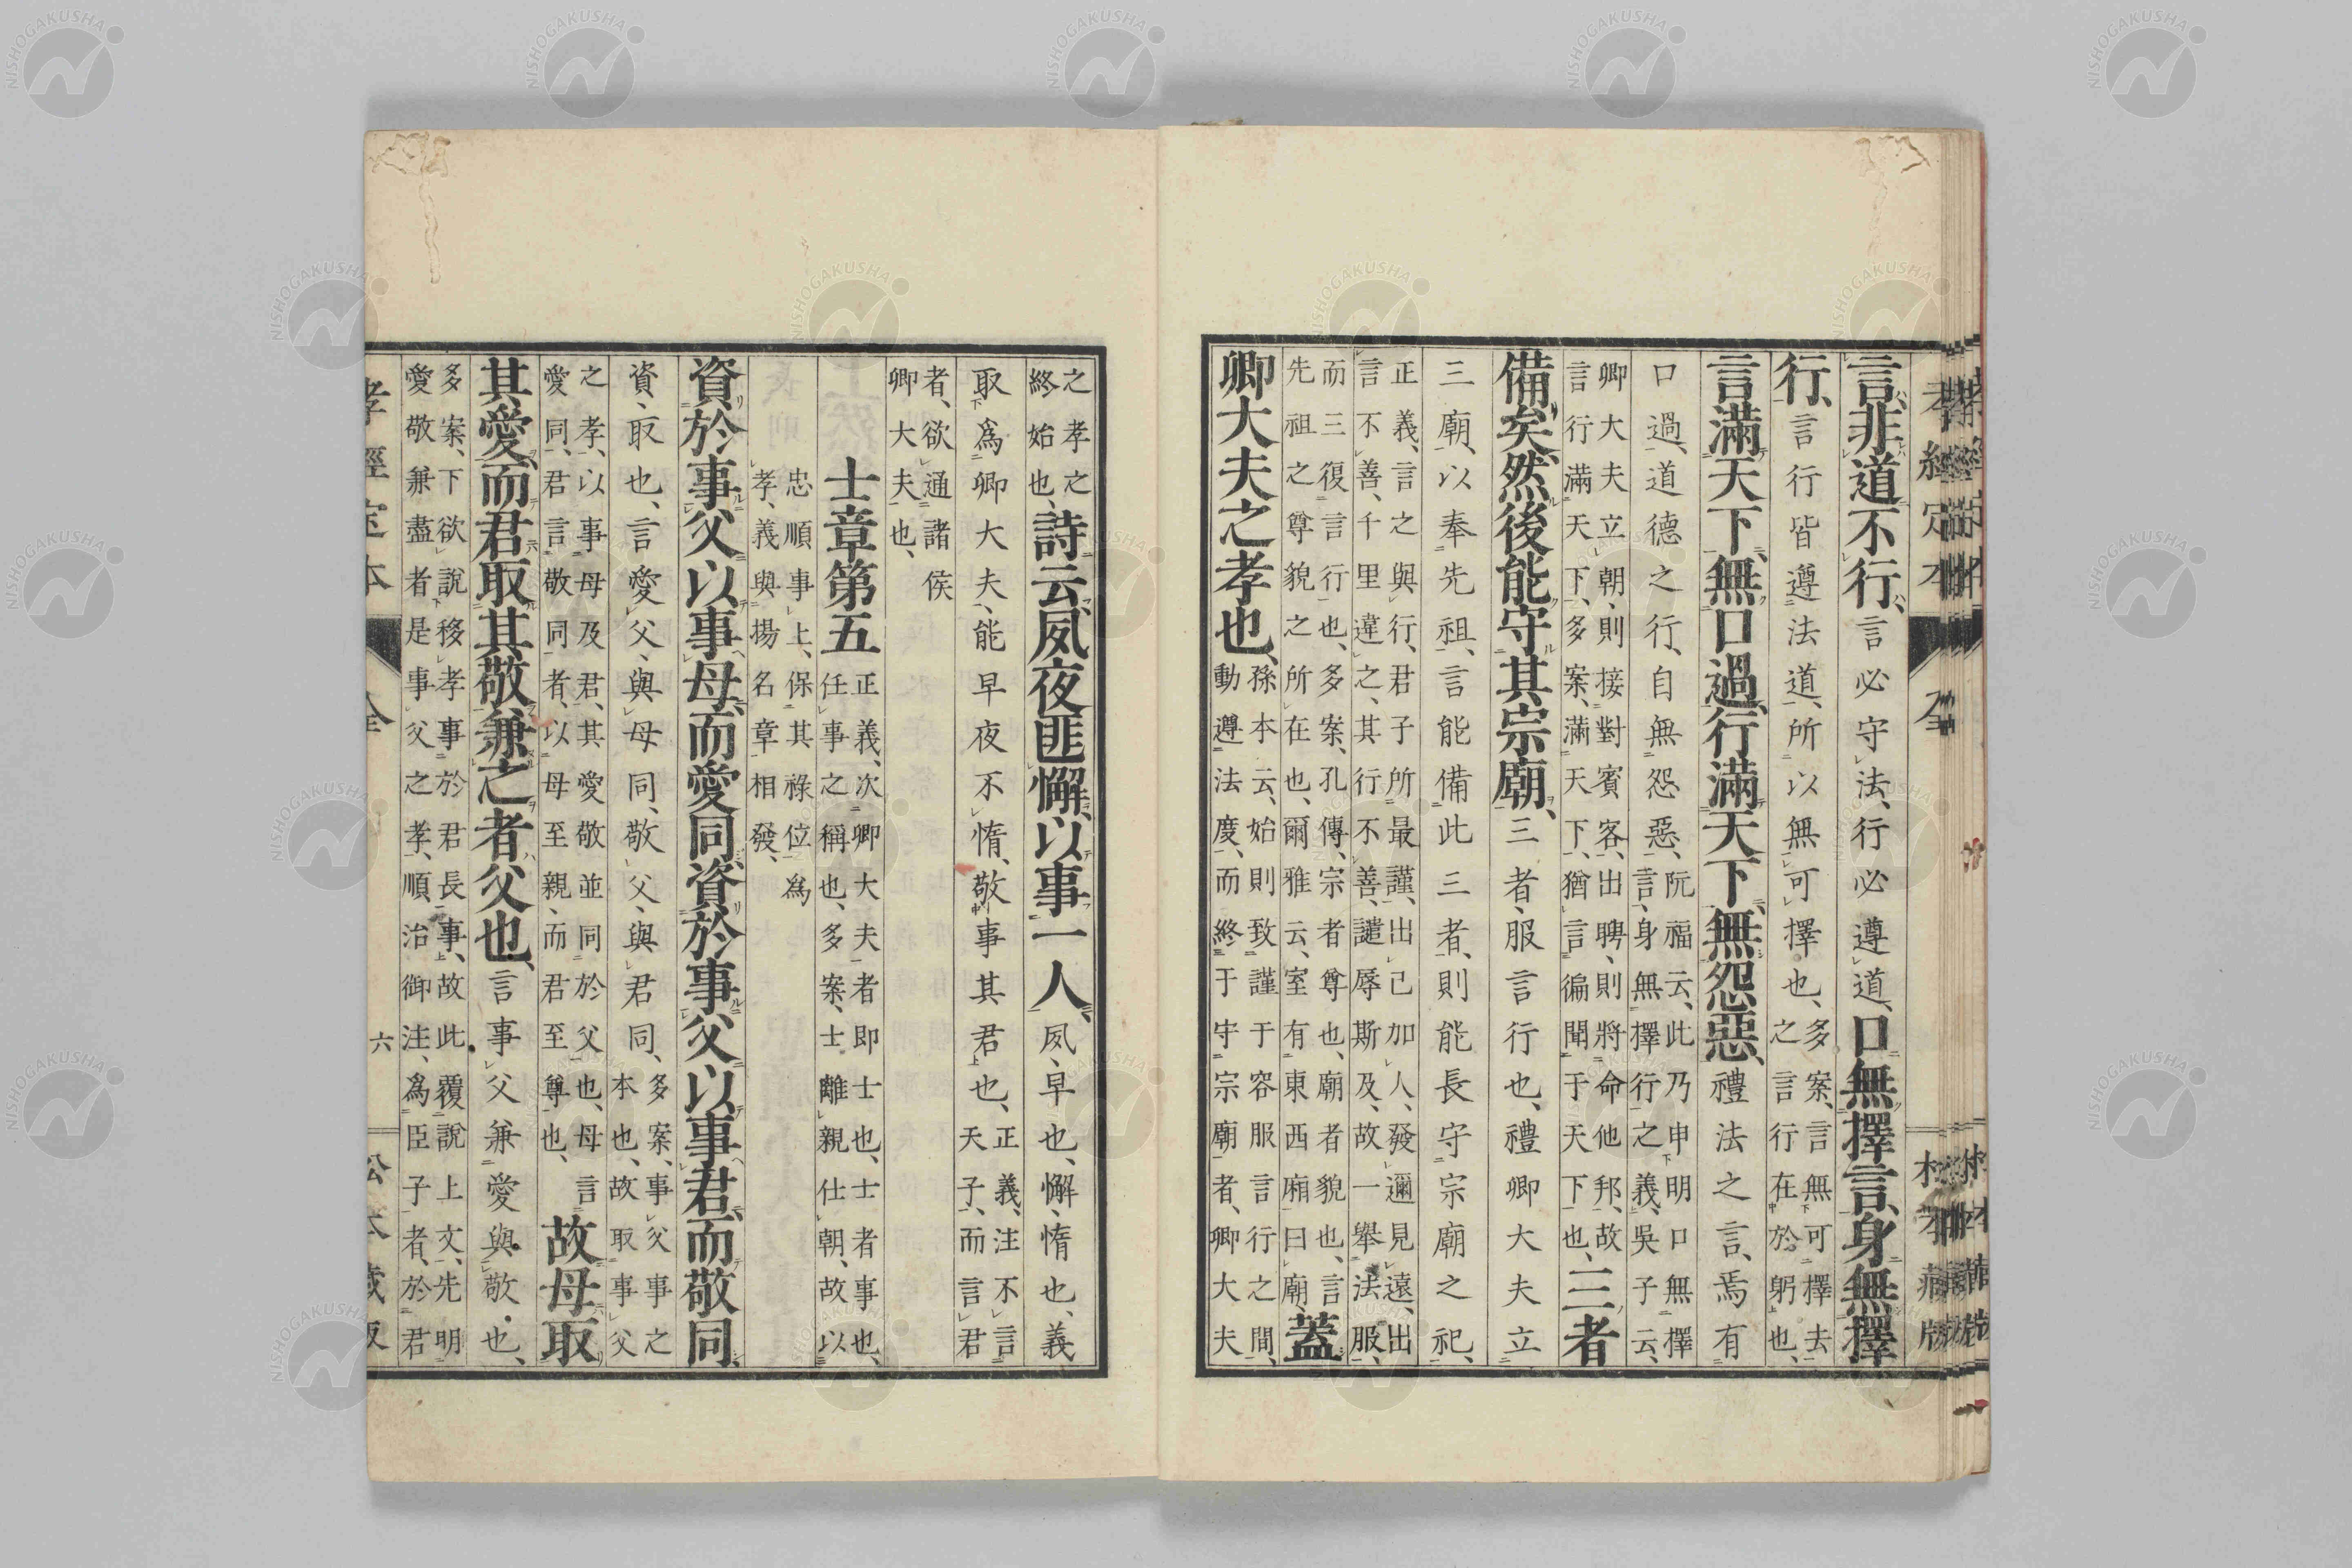 言、非道不行、言必守法、行必遵道、口無擇言、身無擇
行、言行皆遵法道、所以無可擇也、多案、言無可擇去之言行在於躬也、
言滿天下無口過、行滿天下、無怨惡、禮法之言、焉有
口過、道德之行、自無怨惡、阮福云、此乃申明口無擇言、身無擇行之義、吳子云、
卿大夫立朝、則接對賓客、出聘、則將命他邦、故言行滿天下、多案、滿天下、猶言徧聞于天下也、三者
備矣、然後能守其宗廟、三者、服言行也、禮卿大夫立
三廟、以奉先祖、言能備此三者、則能長守宗廟之祀、
正義、言之與行、君子所最謹、出己加人、發邇見遠、出言不善、千里違之、其行不善、譴辱斯及、故一舉法服、
而三復言行也、多案、孔傳、宗者尊也、廟者貌也、言先祖之尊貌之所在也、爾雅云、室有東西廂曰廟、蓋
卿大夫之孝也、孫本云、始則致謹于容服言行之間、動遵法度、而終于守宗廟者、卿大夫
之孝之終始也、詩云、夙夜匪懈、以事一人、夙、早也、懈、惰也、義
取爲卿大夫、能早夜不惰、敬事其君也、正義、注不言天子、而言君
者、欲通諸侯卿大夫也、
士章第五正義、次卿大夫者即士也、士者事也、任事之稱也、多案、士離親仕朝、故以
忠順事上、保其祿位爲孝、義與揚名章相發、
資於事父以事母、而愛同、資於事父以事君、而敬同、
資、取也、言愛父、與母同、敬父、與君同、多案、事父事之本也、故取事父
之孝、以事母及君、其愛敬並同於父也、母言愛同、君言敬同者、以母至親、而君至尊也、故母取
其愛、而君取其敬、兼之者父也、言事父兼愛與敬也、
多案、下欲說移孝事於君長事、故此覆說上文、先明愛敬兼盡者、是事父之孝、順治御注、爲臣子者、於君
孝經定本 全 六 松本藏版
NISHOGAKUSHA